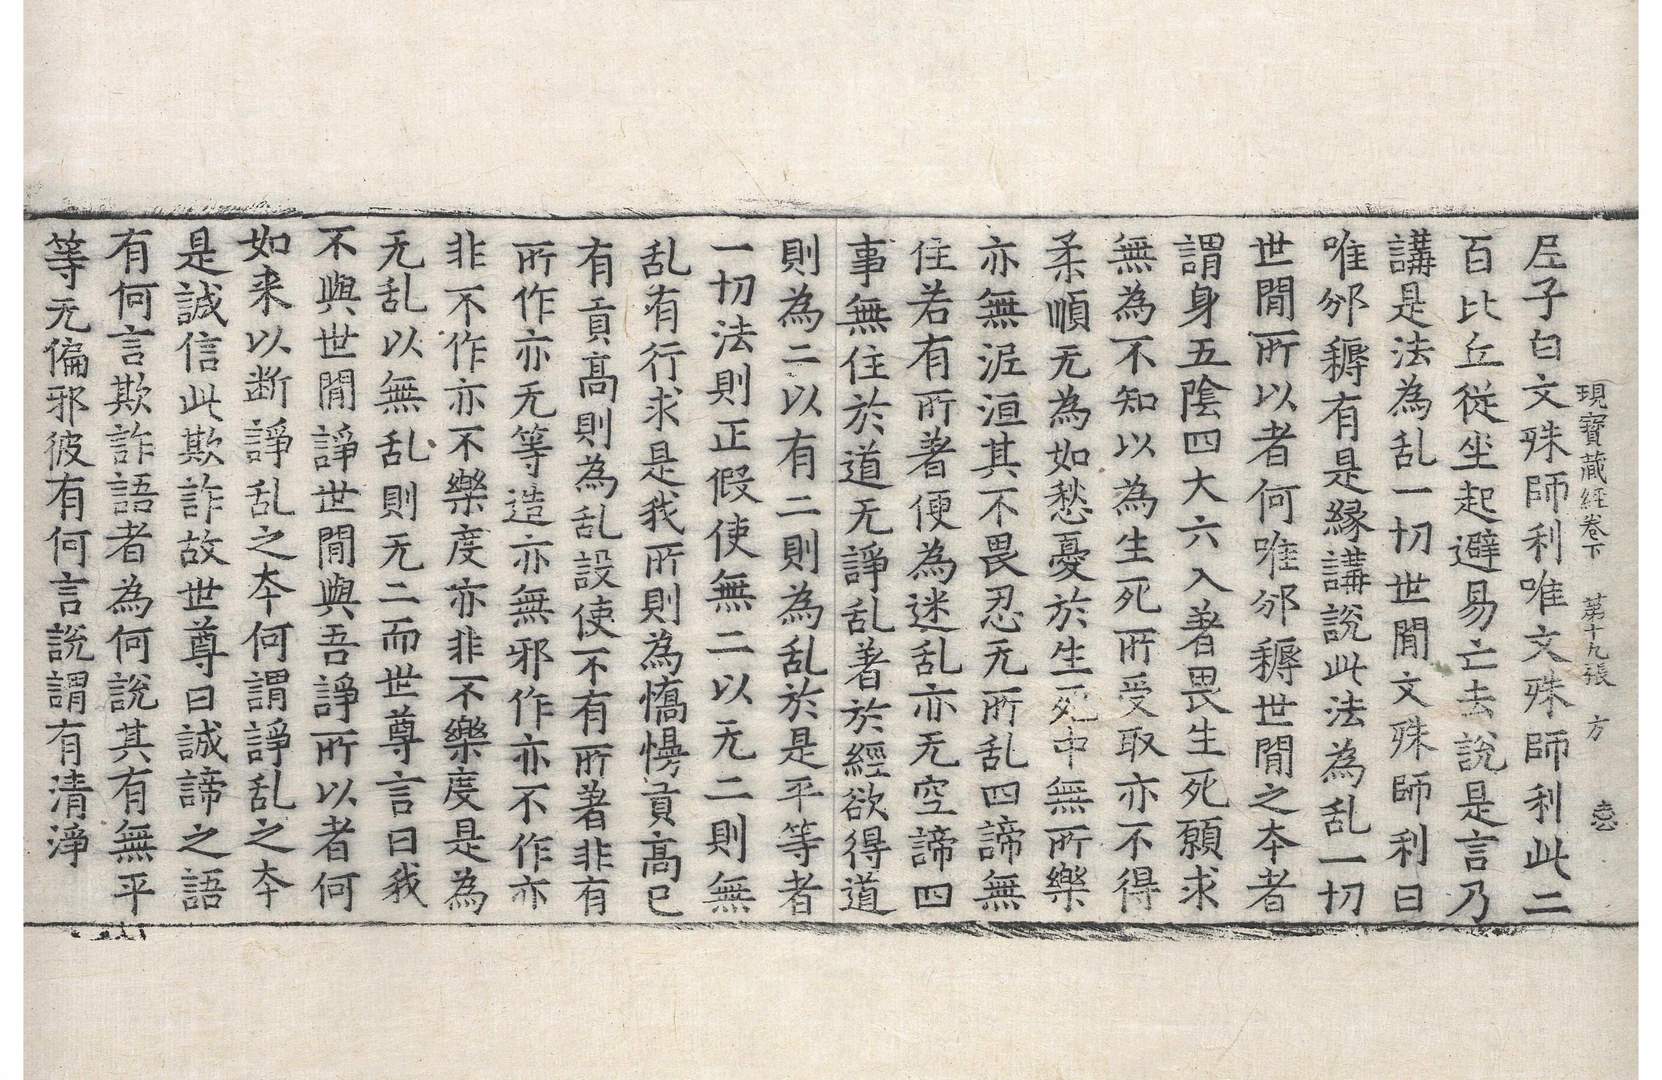 現寶藏経卷下 第十九張 方
尼子白文殊師利唯文殊師利此二
百比丘從坐起避易亡去說是言乃
講是法為乱一切世間文殊師利曰
唯邠耨有是緣講說此法為乱一切
世間所以者何唯邠耨世間之本者
謂身五陰四大六入著畏生死願求
無為不知以為生死所受取亦不得
柔順无為如愁憂於生死中無所樂
亦無泥洹其不畏忍无所乱四諦無
住若有所著便為迷乱亦无空諦四
事無住於道无諍乱著於經欲得道
則為二以有二則為乱於是平等者
一切法則正假使無二以无二則無
乱有行求是我所則為憍慢貢高已
有貢高則為乱設使不有所著非有
所作亦无等造亦無邪作亦不作亦
非不作亦不樂度亦非不樂度是為
无乱以無乱則无二而世尊言曰我
不與世間諍世間與吾諍所以者何
如来以断諍乱之本何謂諍乱之本
是誠信此欺詐故世尊曰誠諦之語
有何言欺詐語者為何說其有無平
等无偏邪彼有何言說謂有清淨